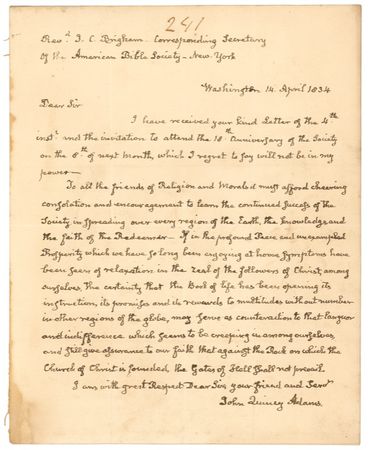 241
Revd. J. C. Brigham - Corresponding Secretary
of the American Bible Society - New York
Washington 14. April 1834
Dear Sir
I have received your kind Letter of the 4th
inst. and the invitation to attend the 18th Anniversary of the Society
on the 8th of next Month, which I regret to say will not be in my
power -
To all the friends of Religion and Morals it must afford cheering
consolation and encouragement to learn the continued success of the
Society in spreading over every region of the Earth, the knowledge and
the faith of the Redeemer - If in the profound Peace and unexampled
Prosperity which we have so long been enjoying at home symptoms have
been seen of relaxation in the zeal of the followers of Christ among
ourselves, the certainty that the Book of life has been opening its
instruction, its promises and its rewards to multitudes without number
in other regions of the globe, may serve as counteraction to that languor
and indifference which seems to be creeping in among ourselves,
and still give assurance to our faith that against the Rock on which the
Church of Christ is founded the Gates of Hell shall not prevail.
I am with great Respect Dear Sir, your friend and Servt
John Quincy Adams.